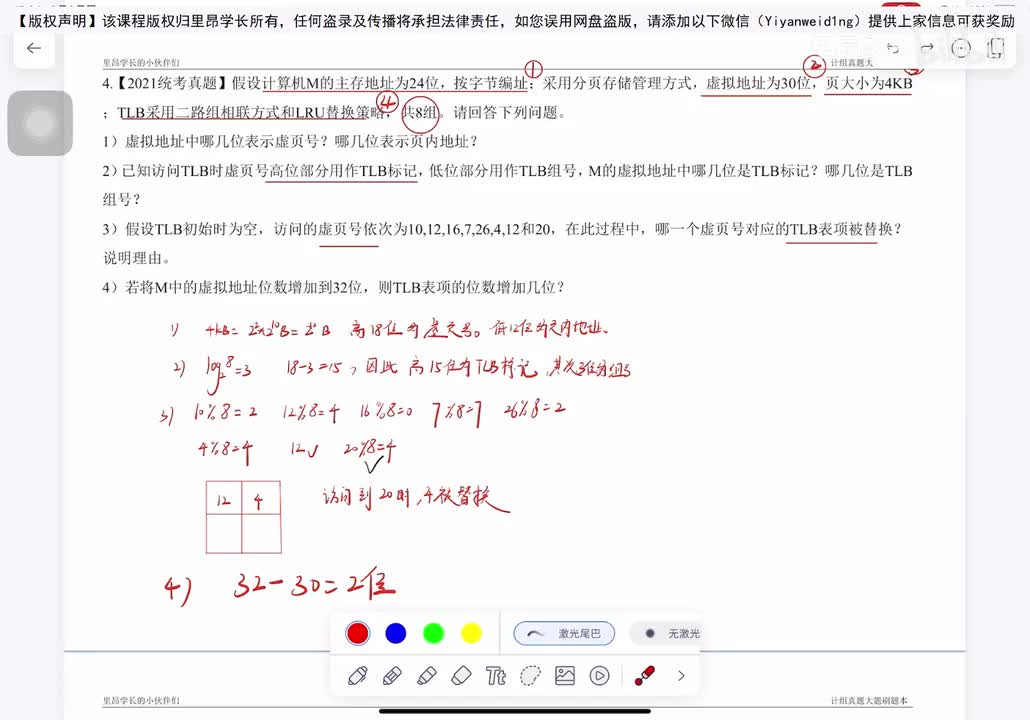 【版权声明】该课程版权归里昂学长所有，任何盗录及传播将承担法律责任，如您误用网盘盗版，请添加以下微信（Yiyanweid1ng）提供上家信息可获奖励
里昂学长的小伙伴们
计组真题大
① ② ④
4.【2021统考真题】假设计算机M的主存地址为24位，按字节编址；采用分页存储管理方式，虚拟地址为30位，页大小为4KB
；TLB采用二路组相联方式和LRU替换策略，共8组。请回答下列问题。
1）虚拟地址中哪几位表示虚页号？哪几位表示页内地址？
2）已知访问TLB时虚页号高位部分用作TLB标记，低位部分用作TLB组号，M的虚拟地址中哪几位是TLB标记？哪几位是TLB
组号？
3）假设TLB初始时为空，访问的虚页号依次为10,12,16,7,26,4,12和20，在此过程中，哪一个虚页号对应的TLB表项被替换？
说明理由。
4）若将M中的虚拟地址位数增加到32位，则TLB表项的位数增加几位？
1) 4KB = 2²×2¹⁰B = 2¹²B 高18位为虚页号。低12位为页内地址。
2) log₂8=3 18-3=15，因此 高15位为TLB标记，其次3位为组号
3) 10%8=2 12%8=4 16%8=0 7%8=7 26%8=2
4%8=4 12✓ 20%8=4
12 4 访问到20时，4被替换
4) 32-30=2位
激光尾巴 无激光
Tt
里昂学长的小伙伴们
计组真题大题刷题本